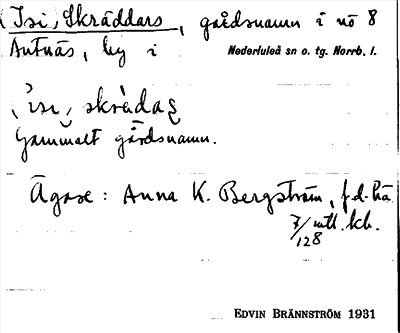 (Isi, Skräddars, gårdsnamn i nö 8
Antnäs, by i Nederluleå sn o. tg. Norrb. l.
Gammalt gårdsnamn.
Ägare: Anna K. Bergström, f.d.
7/ mtl. kb.
128
EDVIN BRÄNNSTRÖM 1931